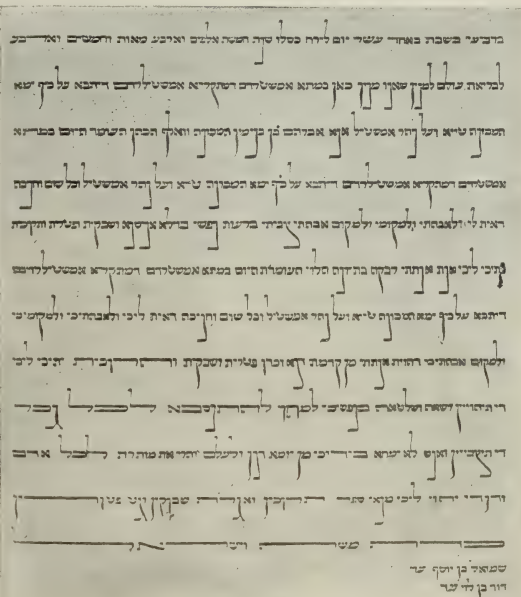 ברביעי בשבת באחד עשר יום לירח כסלו שנת חמשת אלפים וארבע מאות וחמשים וארבע
לבריאת עולם למנין שאנו מנין כאן במתא אמשטילרדם דמתקריא אמשטילרדם דיתבא על כיף ימא
המכונה טייא ועל נהר אמשטיל אנא אברהם בן בנימין המכונה וואלף הכהן העומד היום במתא
אמשטילרדם דמתקריא אמשטילרדם דיתבא על כיף ימא המכונה טייא ועל נהר אמשטיל וכל שום וחניכה
דאית לי ולאבהתי ולמקומי ולמקום אבהתי צביתי ברעות נפשי בדלא אניסנא ושבקית ופטרית ותרוכית
יתיכי ליכי אנת אנתתי רבקה בת יונה הלוי העומדת היום במתא אמשטילרדם דמתקריא אמשטילרדם
דיתבא על כיף ימא המכונה טייא ועל נהר אמשטיל וכל שום וחניכה דאית ליכי ולאבהתיכי ולמקומיכי
ולמקום אבהתיכי דהוית אנתתי מן קדמת דנא וכדון פטרית ושבקית ותרוכית יתיכי ליכי
די תיהוייין רשאה ושלטאה בנפשיכי למהך להתנסבא לכל גבר
די תיצבייין ואנש לא ימחא בידיכי מן יומא דנן ולעלם והרי את מותרת לכל אדם
ודן די יהוי ליכי מנאי ספר תרוכין ואגרת שבוקין וגט פטורין
כדת משה וישראל
שמואל בן יוסף עד
דוד בן לוי עד